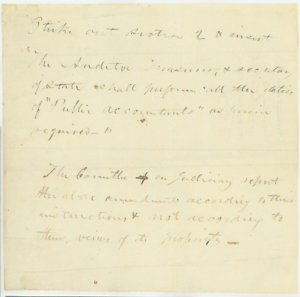 Strike out section 2 & insert
"The Auditor Treasurer, & secretary
of State shall perform all the duties
of "Public accountants" as herein
required—"
The Committee on Judiciary report
the above amendments according to their
instructions & not according to
their views of its propriety—